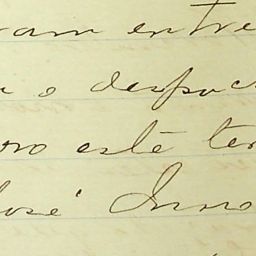 ram entre
o despac
oro esté ter
José Inno